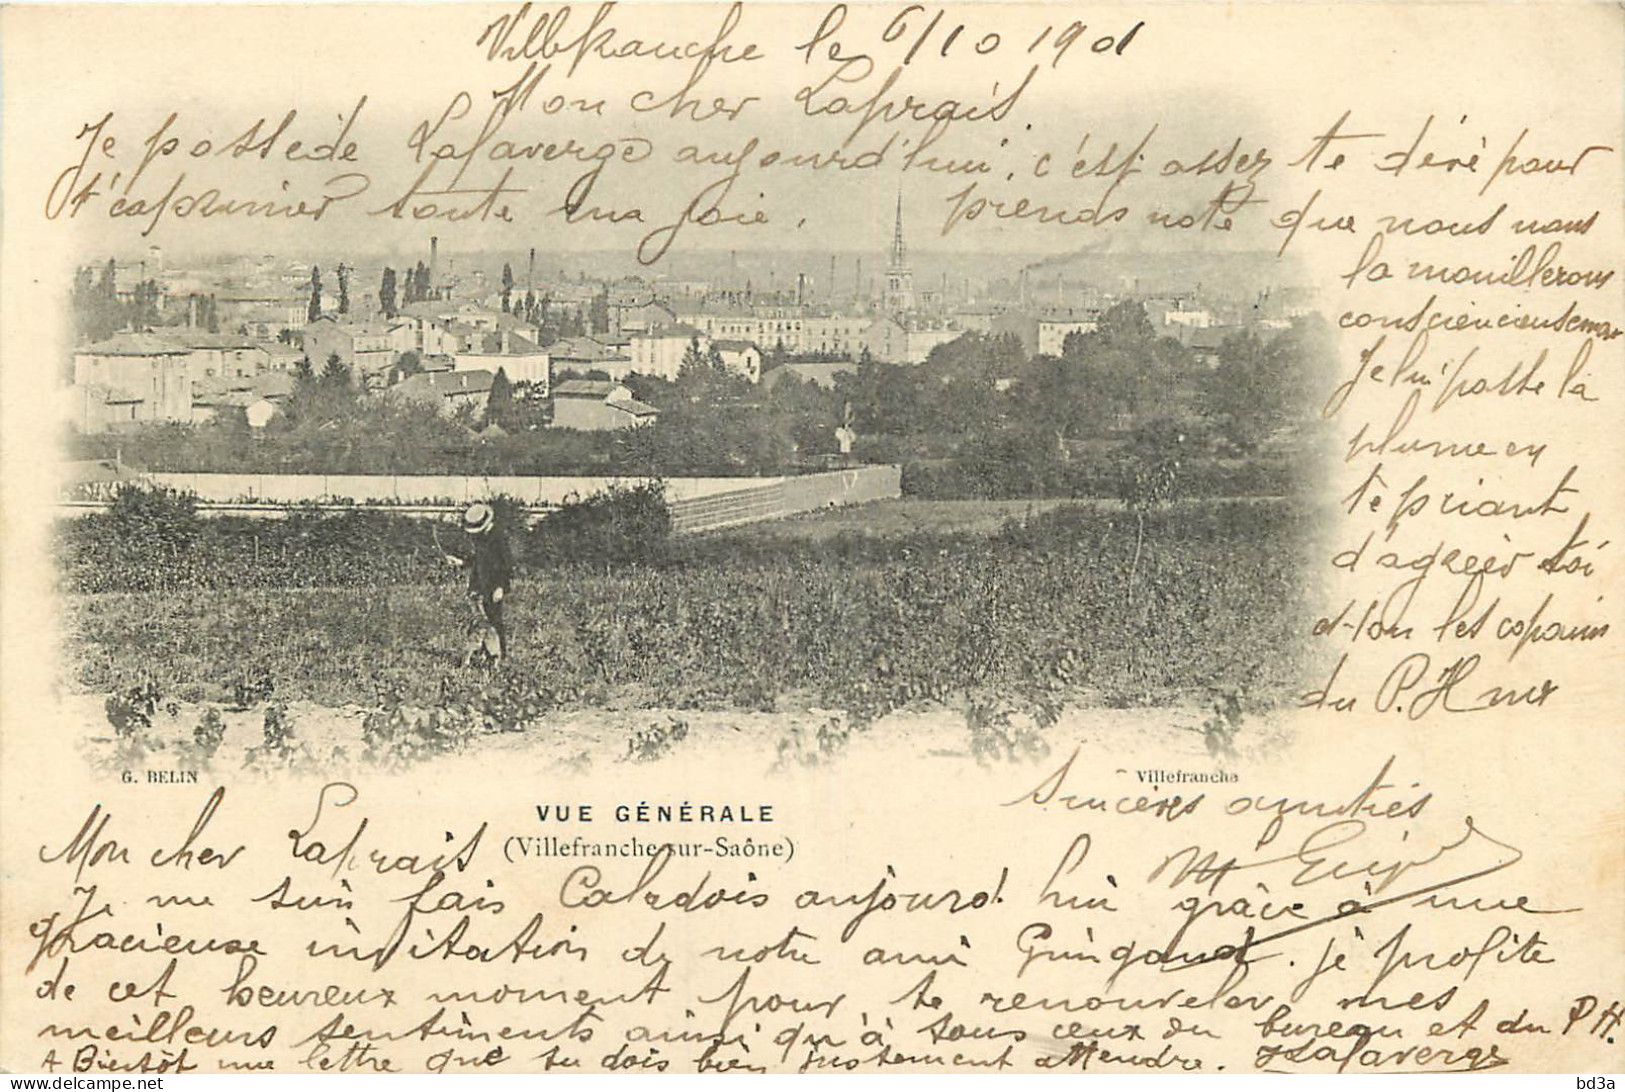 Villefranche le 6/10 1901
Mon cher Laprais.
Je possède Lafaverge aujourd'hui, c'est assez te dire pour
t'exprimer toute ma joie. prends note que nous nous
la mouillerons
consciencieusement
Je lui passe la
plume en
te priant
d'agréer toi
et tous les copains
du P.H
Sincères amitiés
G. BELIN
Villefranche
VUE GÉNÉRALE
(Villefranche-sur-Saône)
Mon cher Laprais
Je me suis fais Caladois aujourd'hui grâce à une
gracieuse invitation de notre ami Guigand. je profite
de cet heureux moment pour te renouveler mes
meilleurs sentiments ainsi qu'à tous ceux du bureau et du P.H.
A Bientôt une lettre que tu dois bien justement attendre. Lafaverge
bd3a